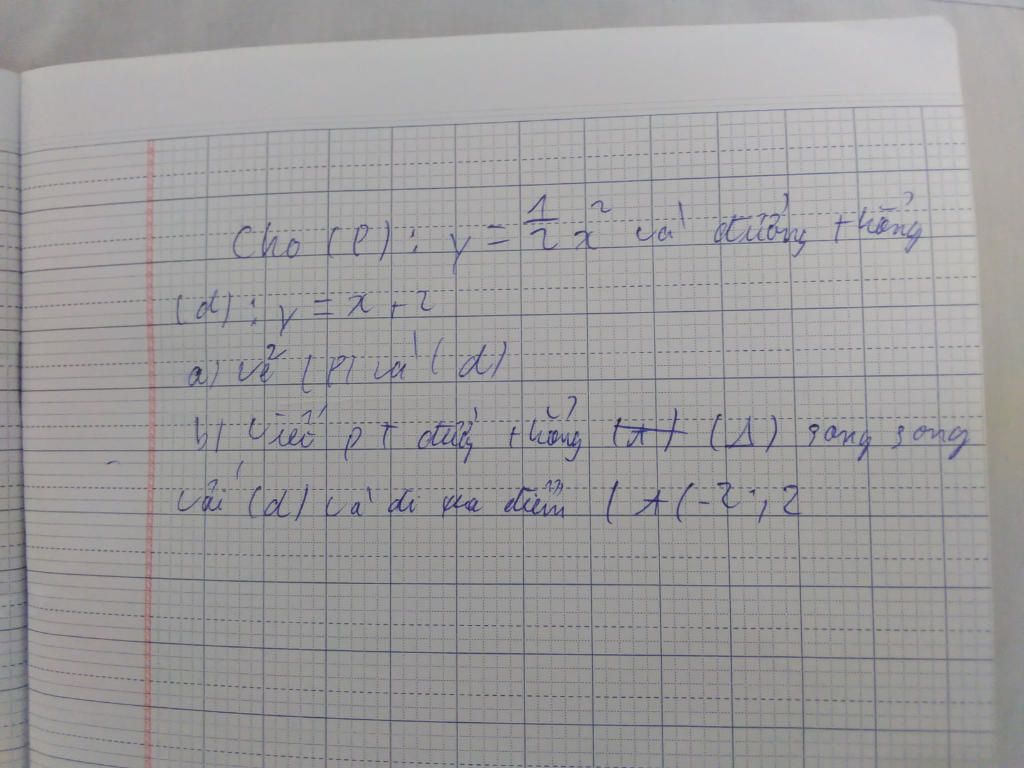 Cho (P): y = 1/2 x² và đường thẳng
(d): y = x + 2
a) Vẽ (P) và (d)
b) Viết pt đường thẳng (Δ) song song
với (d) và đi qua điểm (A(-2; 2